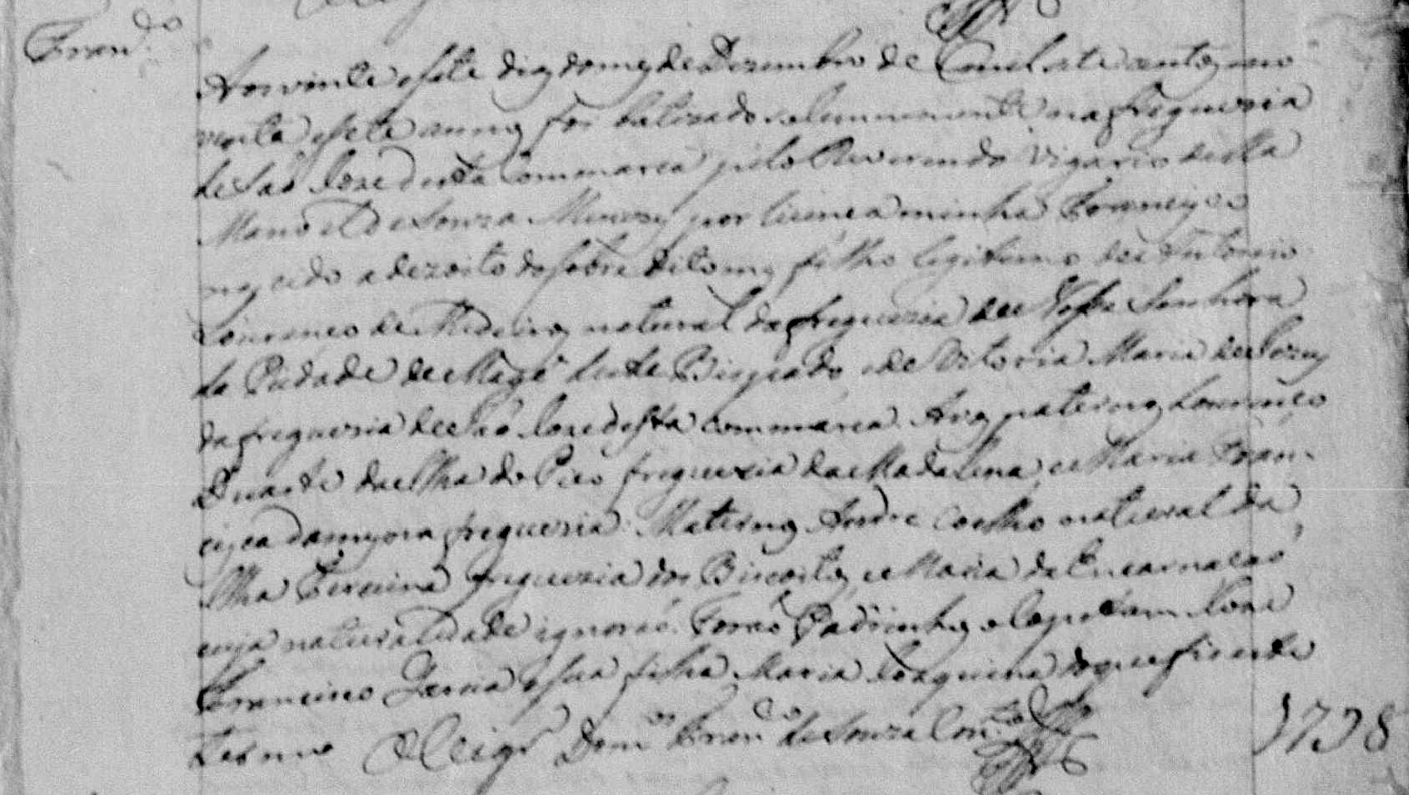 Fran.do
Aos vinte esete dias do mes de Dezembro de mil sete centos eno
venta esete annos foi batizado solemnemente na freguezia
de Saõ Joze desta Commarca pelo Reverendo Vigario della
Manoel de Souza Menezes por licença minha Francisco
nascido a dezoito do sobre dito mes filho legitimo de Antonio
Lourenço de Medeiros natural da freguezia de Nossa Senhora
da Piedade de Magé deste Bispado e de Vitoria Maria de Jezus
da freguezia de Saõ Joze desta commarca. Avos paternos Lourenço
Duarte da Ilha do Pico freguezia da Madalena, e Maria Fran-
cisca da mesma freguezia. Maternos Andre Coelho natural da
Ilha Terceira freguezia dos Biscoitos, e Maria da Encarnaçaõ
cuja naturalidade ignoraõ. Foraõ Padrinhos o Capitam Joze
Francisco Garcia esua filha Maria Joaquina do que fis este
termo O Vigr.o Dom.os Fran.co de Souza Cout.o
1798